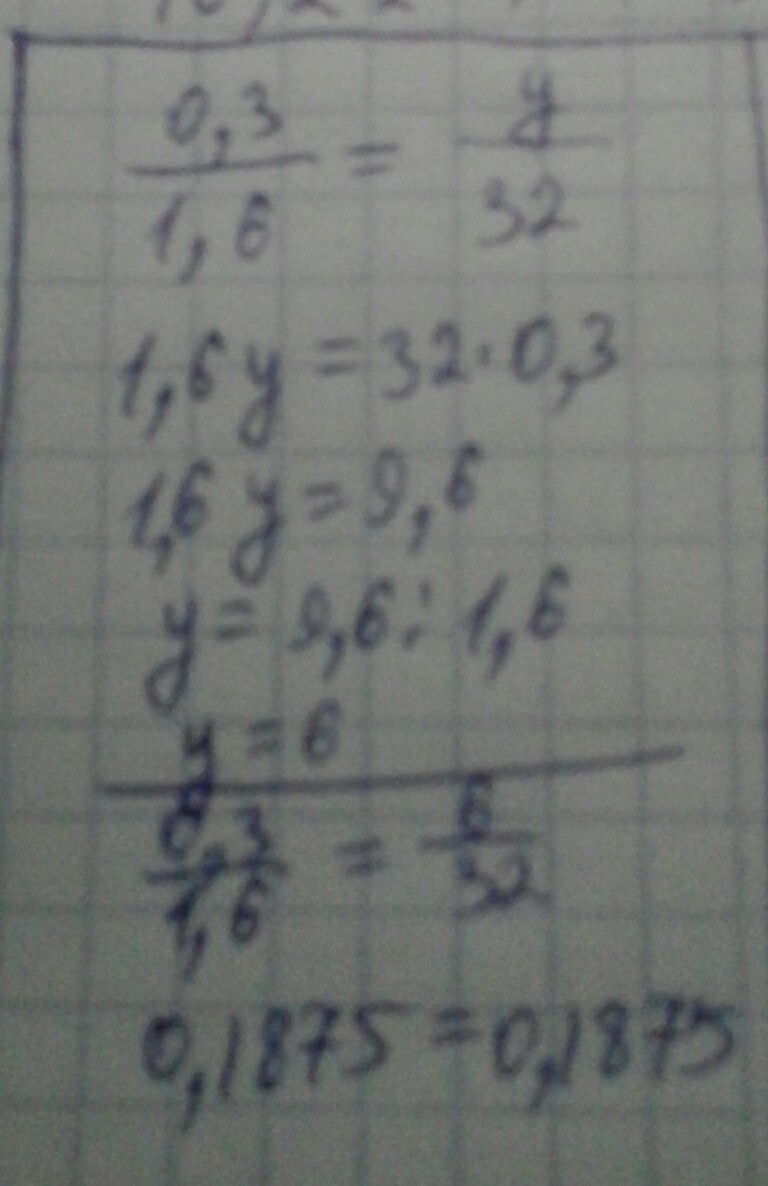 0,3/1,6 = y/32
1,6y = 32·0,3
1,6y = 9,6
y = 9,6 : 1,6
y = 6
0,3/1,6 = 6/32
0,1875 = 0,1875